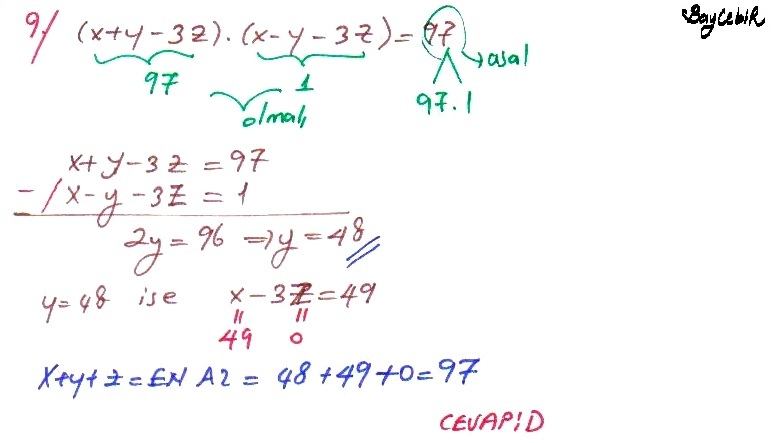 BayCebiR
9/ (x+y-3z).(x-y-3z)=97
97 1 → asal
olmalı 97.1
x+y-3z=97
-/x-y-3z=1
2y=96 ⇒ y=48
y=48 ise x-3z=49
= =
49 0
x+y+z=EN AZ=48+49+0=97
CEVAP!D